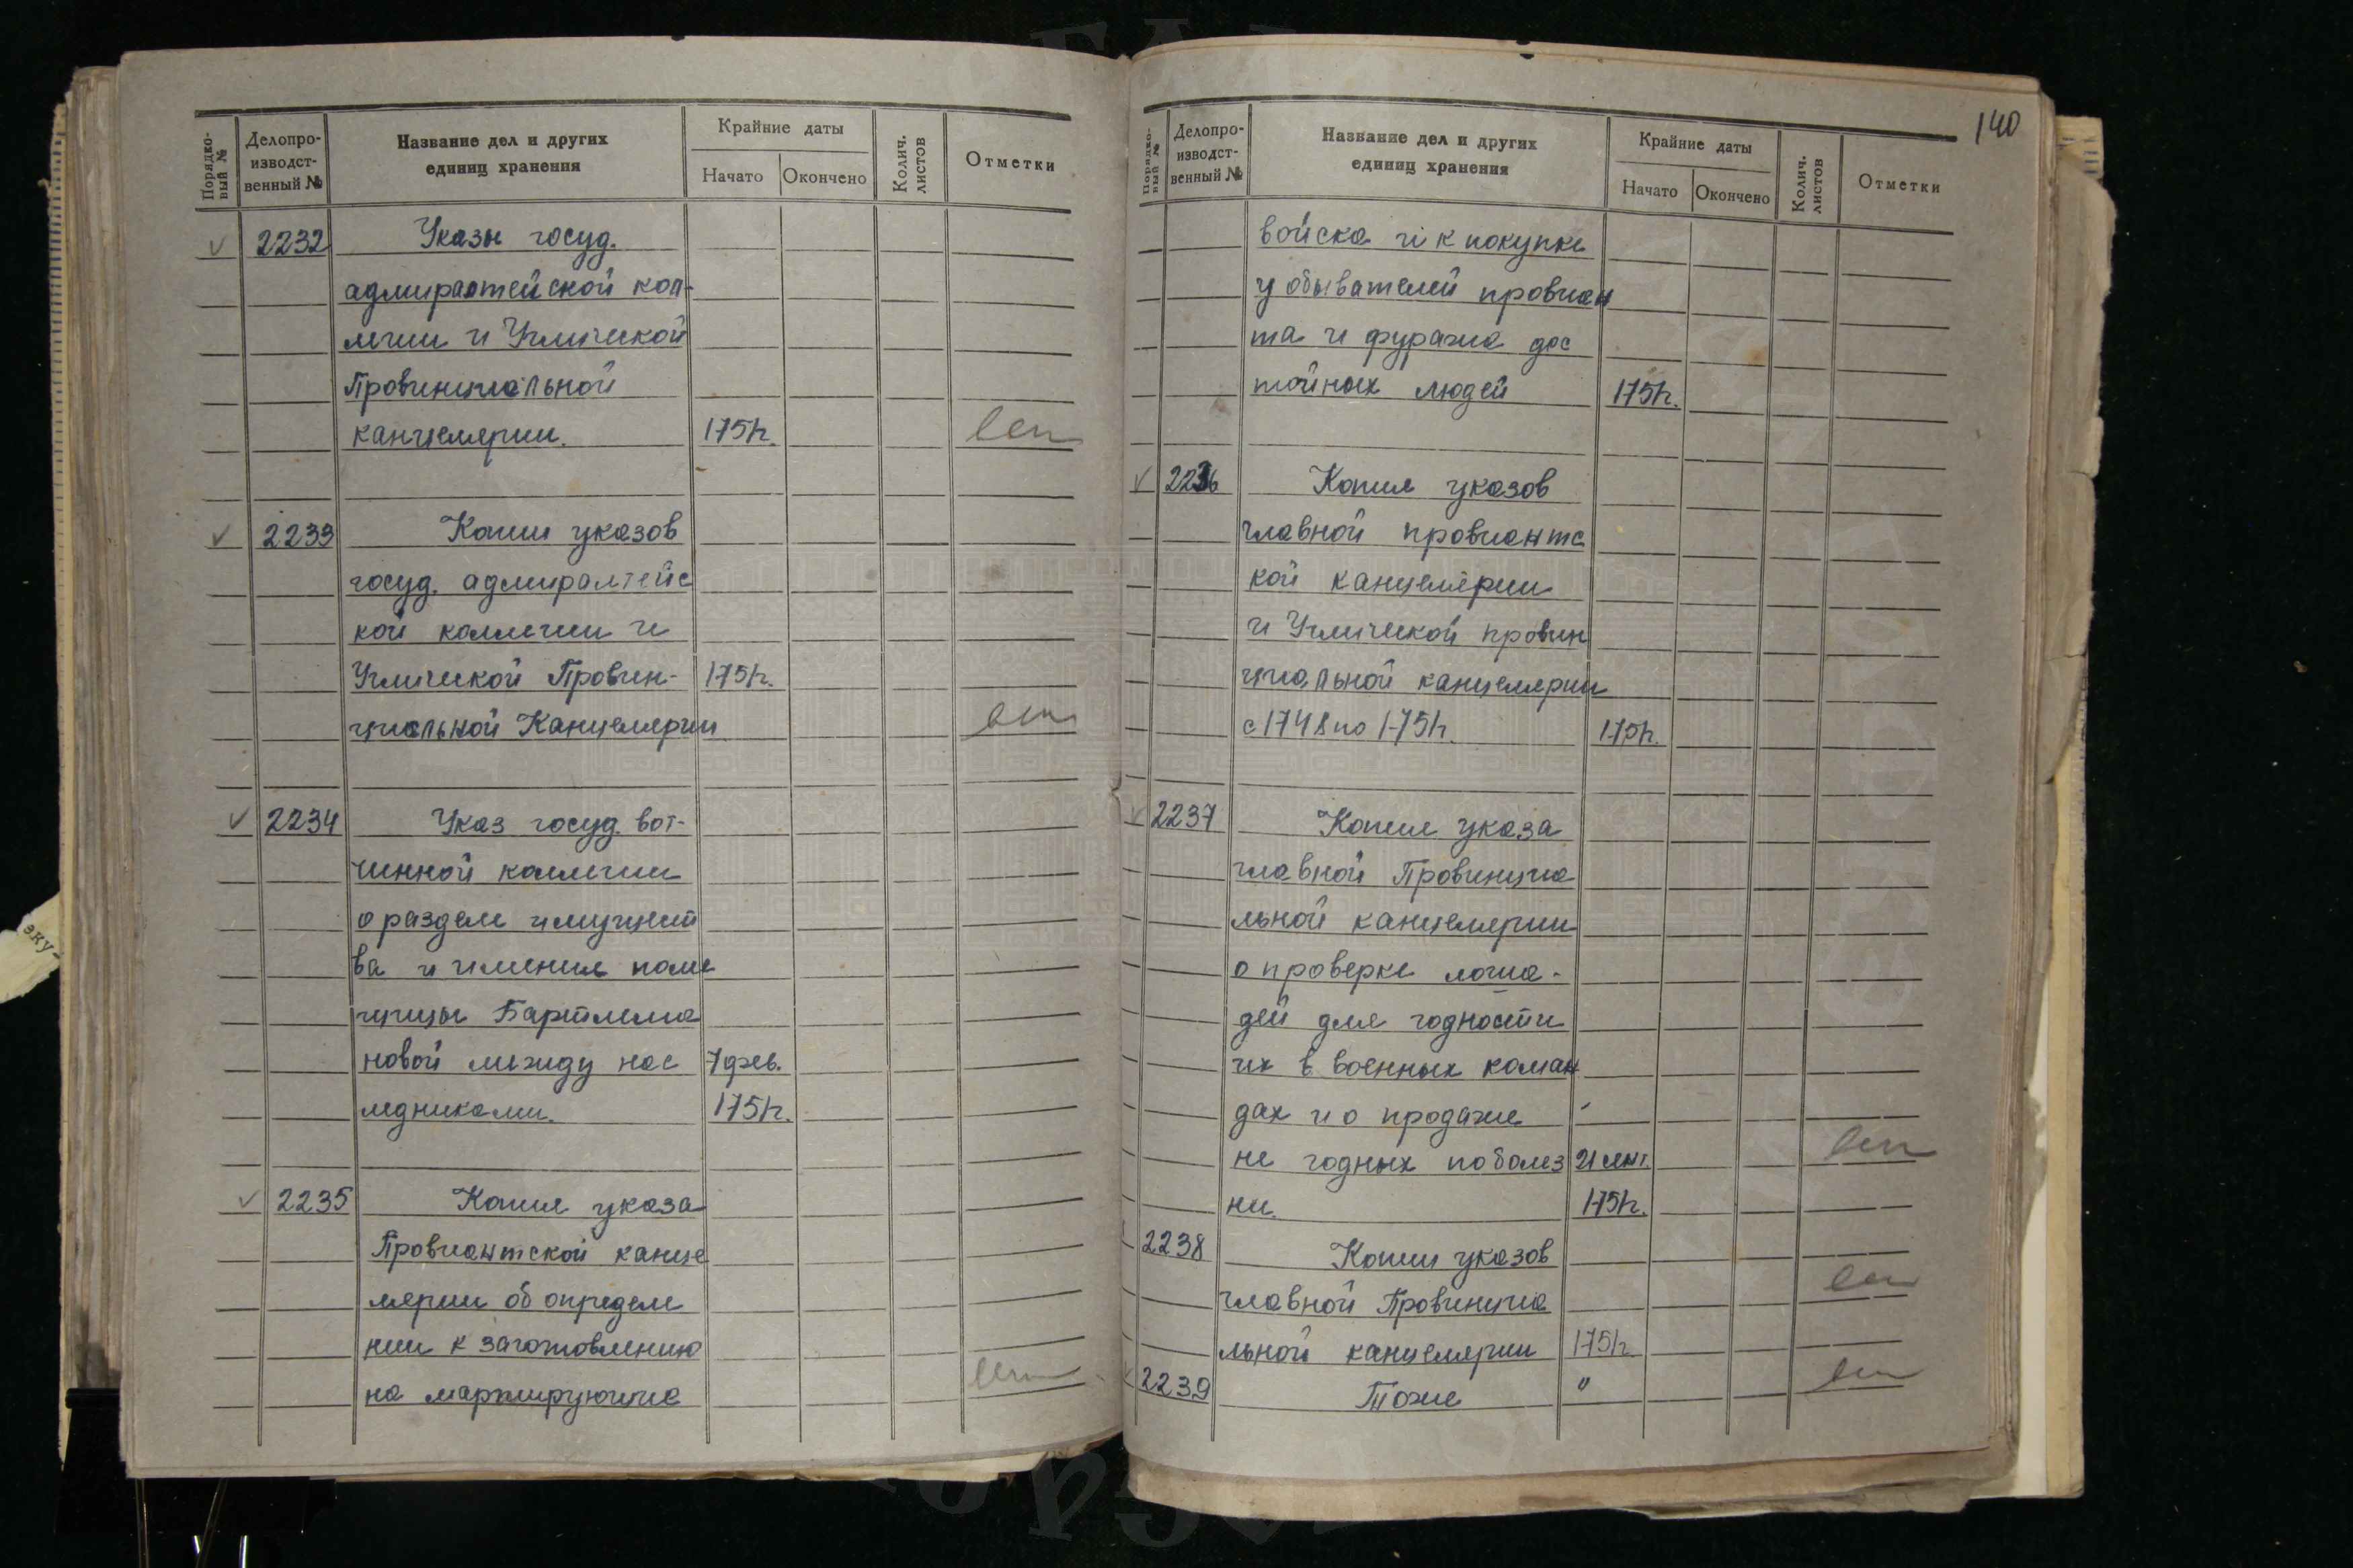 Порядко-
вый №
Делопро-
изводст-
венный №
Название дел и других
единиц хранения
Крайние даты
Начато
Окончено
Колич.
листов
Отметки
✓ 2232 Указы госуд.
адмиралтейской кол-
легии и Угличской
Провинциальной
канцелярии. 1751г.
✓ 2233 Копии указов
госуд. адмиралтейс
кой коллегии и
Угличской Провин- 1751г.
циальной Канцелярии
✓ 2234 Указ госуд. вот-
чинной коллегии
о разделе имущест
ва и имения поме
щицы Бартлема
новой между нас 7 фев.
ледниками. 1751г.
✓ 2235 Копия указа
Провиантской канце
лярии об определе
нии к заготовлению
на марширующие
140
Порядко-
вый №
Делопро-
изводст-
венный №
Название дел и других
единиц хранения
Крайние даты
Начато
Окончено
Колич.
листов
Отметки
войска и к покупке
у обывателей провиан
та и фуража дос
тойных людей 1751г.
✓ 2236 Копия указов
главной провиантс
кой канцелярии
и Угличской провин
циальной канцелярии
с 1748 по 1751г. 1751г.
✓ 2237 Копия указа
главной Провинциа
льной канцелярии
о проверке лоша-
дей для годности
их в военных коман
дах и о продаже
не годных по болез 21 сент.
ни. 1751г.
2238 Копии указов
главной Провинциа
льной канцелярии 1751г.
✓ 2239 Тоже "
эку-